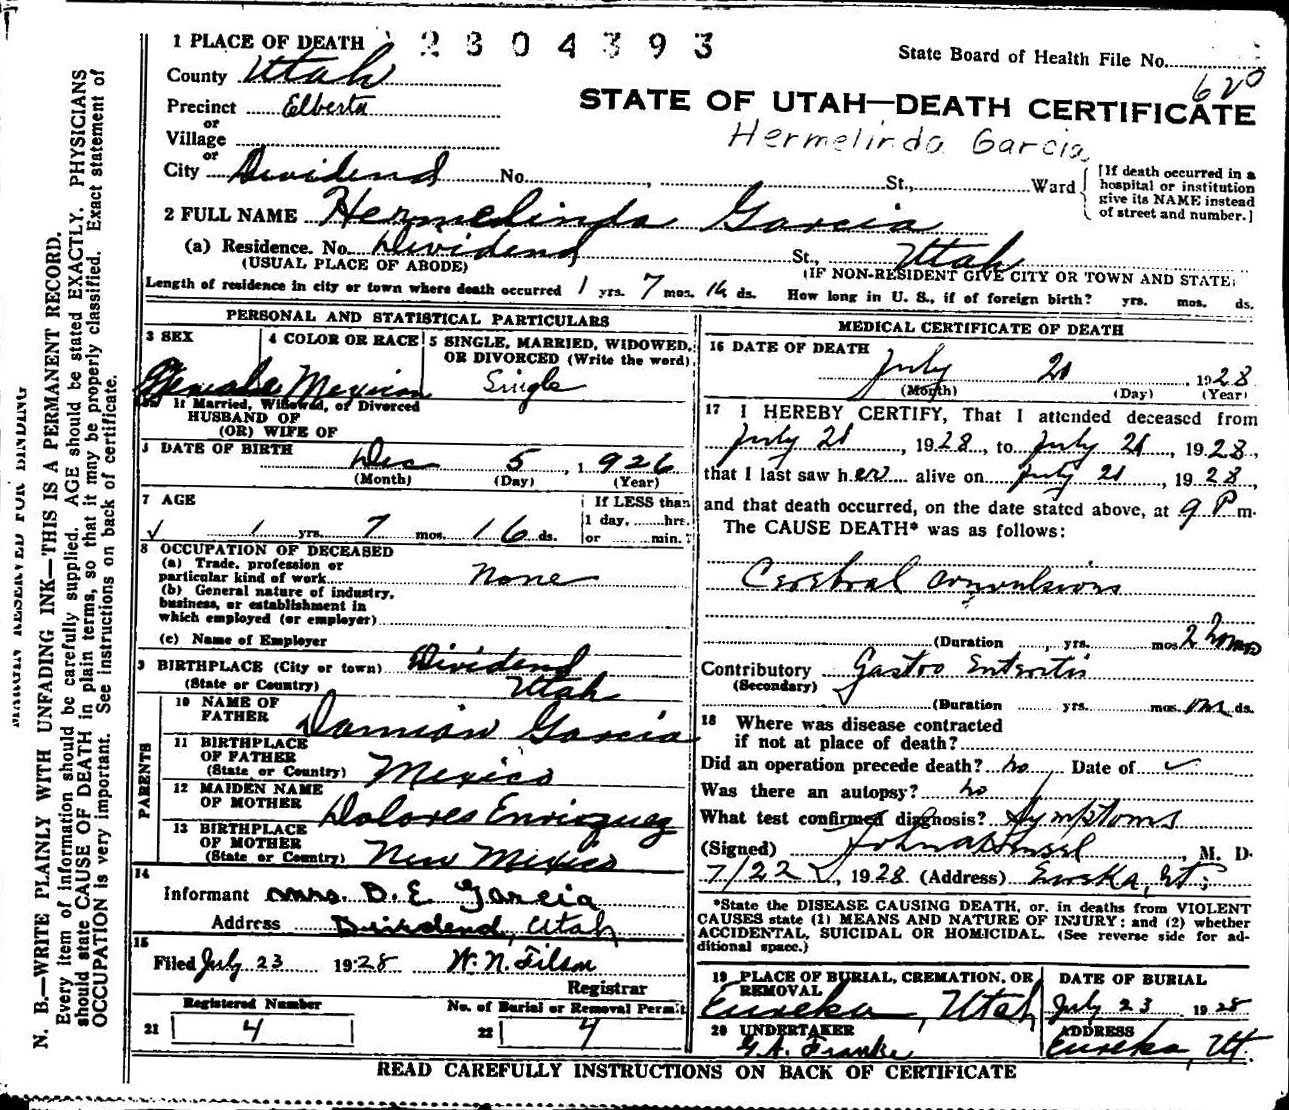 1 PLACE OF DEATH 2304393
State Board of Health File No.
620
County Utah
Precinct Elberta
or
Village
or
City Dividend No. , St., Ward
STATE OF UTAH—DEATH CERTIFICATE
Hermelinda Garcia
[If death occurred in a
hospital or institution
give its NAME instead
of street and number.]
2 FULL NAME Hermelinda Garcia
(a) Residence. No. Dividend St., Utah
(USUAL PLACE OF ABODE) (IF NON-RESIDENT GIVE CITY OR TOWN AND STATE)
Length of residence in city or town where death occurred 1 yrs. 7 mos. 16 ds. How long in U. S., if of foreign birth? yrs. mos. ds.
PERSONAL AND STATISTICAL PARTICULARS
3 SEX
Female
4 COLOR OR RACE
Mexican
5 SINGLE, MARRIED, WIDOWED,
OR DIVORCED (Write the word)
Single
If Married, Widowed, or Divorced
HUSBAND OF
(OR) WIFE OF
DATE OF BIRTH
Dec 5, 1926
(Month) (Day) (Year)
7 AGE
1 yrs. 7 mos. 16 ds.
If LESS than
1 day, hrs.
or min.
8 OCCUPATION OF DECEASED
(a) Trade, profession or
particular kind of work None
(b) General nature of industry,
business, or establishment in
which employed (or employer)
(c) Name of Employer
9 BIRTHPLACE (City or town) Dividend
(State or Country) Utah
PARENTS
10 NAME OF
FATHER Damian Garcia
11 BIRTHPLACE
OF FATHER
(State or Country) Mexico
12 MAIDEN NAME
OF MOTHER Dolores Enriquez
13 BIRTHPLACE
OF MOTHER
(State or Country) New Mexico
14
Informant Mrs. D. E. Garcia
Address Dividend, Utah
15
Filed July 23 1928 W. N. Filson
Registrar
Registered Number No. of Burial or Removal Permit
21 4 22 4
MEDICAL CERTIFICATE OF DEATH
16 DATE OF DEATH
July 21, 1928
(Month) (Day) (Year)
17 I HEREBY CERTIFY, That I attended deceased from
July 21, 1928, to July 21, 1928,
that I last saw her alive on July 21, 1928,
and that death occurred, on the date stated above, at 9 P m.
The CAUSE DEATH* was as follows:
Cerebral convulsions
(Duration , yrs. mos. 2 hours
Contributory Gastro Enteritis
(Secondary)
(Duration yrs. mos. ds.
18 Where was disease contracted
if not at place of death?
Did an operation precede death? no Date of
Was there an autopsy? no
What test confirmed diagnosis? Symptoms
(Signed) , M. D.
7/22, 1928 (Address) Eureka, Ut.
*State the DISEASE CAUSING DEATH, or, in deaths from VIOLENT
CAUSES state (1) MEANS AND NATURE OF INJURY; and (2) whether
ACCIDENTAL, SUICIDAL OR HOMICIDAL. (See reverse side for ad-
ditional space.)
19 PLACE OF BURIAL, CREMATION, OR
REMOVAL
Eureka, Utah
DATE OF BURIAL
July 23 1928
20 UNDERTAKER
G. A. Franke
ADDRESS
Eureka, Ut.
READ CAREFULLY INSTRUCTIONS ON BACK OF CERTIFICATE
MARGIN RESERVED FOR BINDING
N. B.—WRITE PLAINLY WITH UNFADING INK—THIS IS A PERMANENT RECORD.
Every item of information should be carefully supplied. AGE should be stated EXACTLY. PHYSICIANS
should state CAUSE OF DEATH in plain terms, so that it may be properly classified. Exact statement of
OCCUPATION is very important. See instructions on back of certificate.